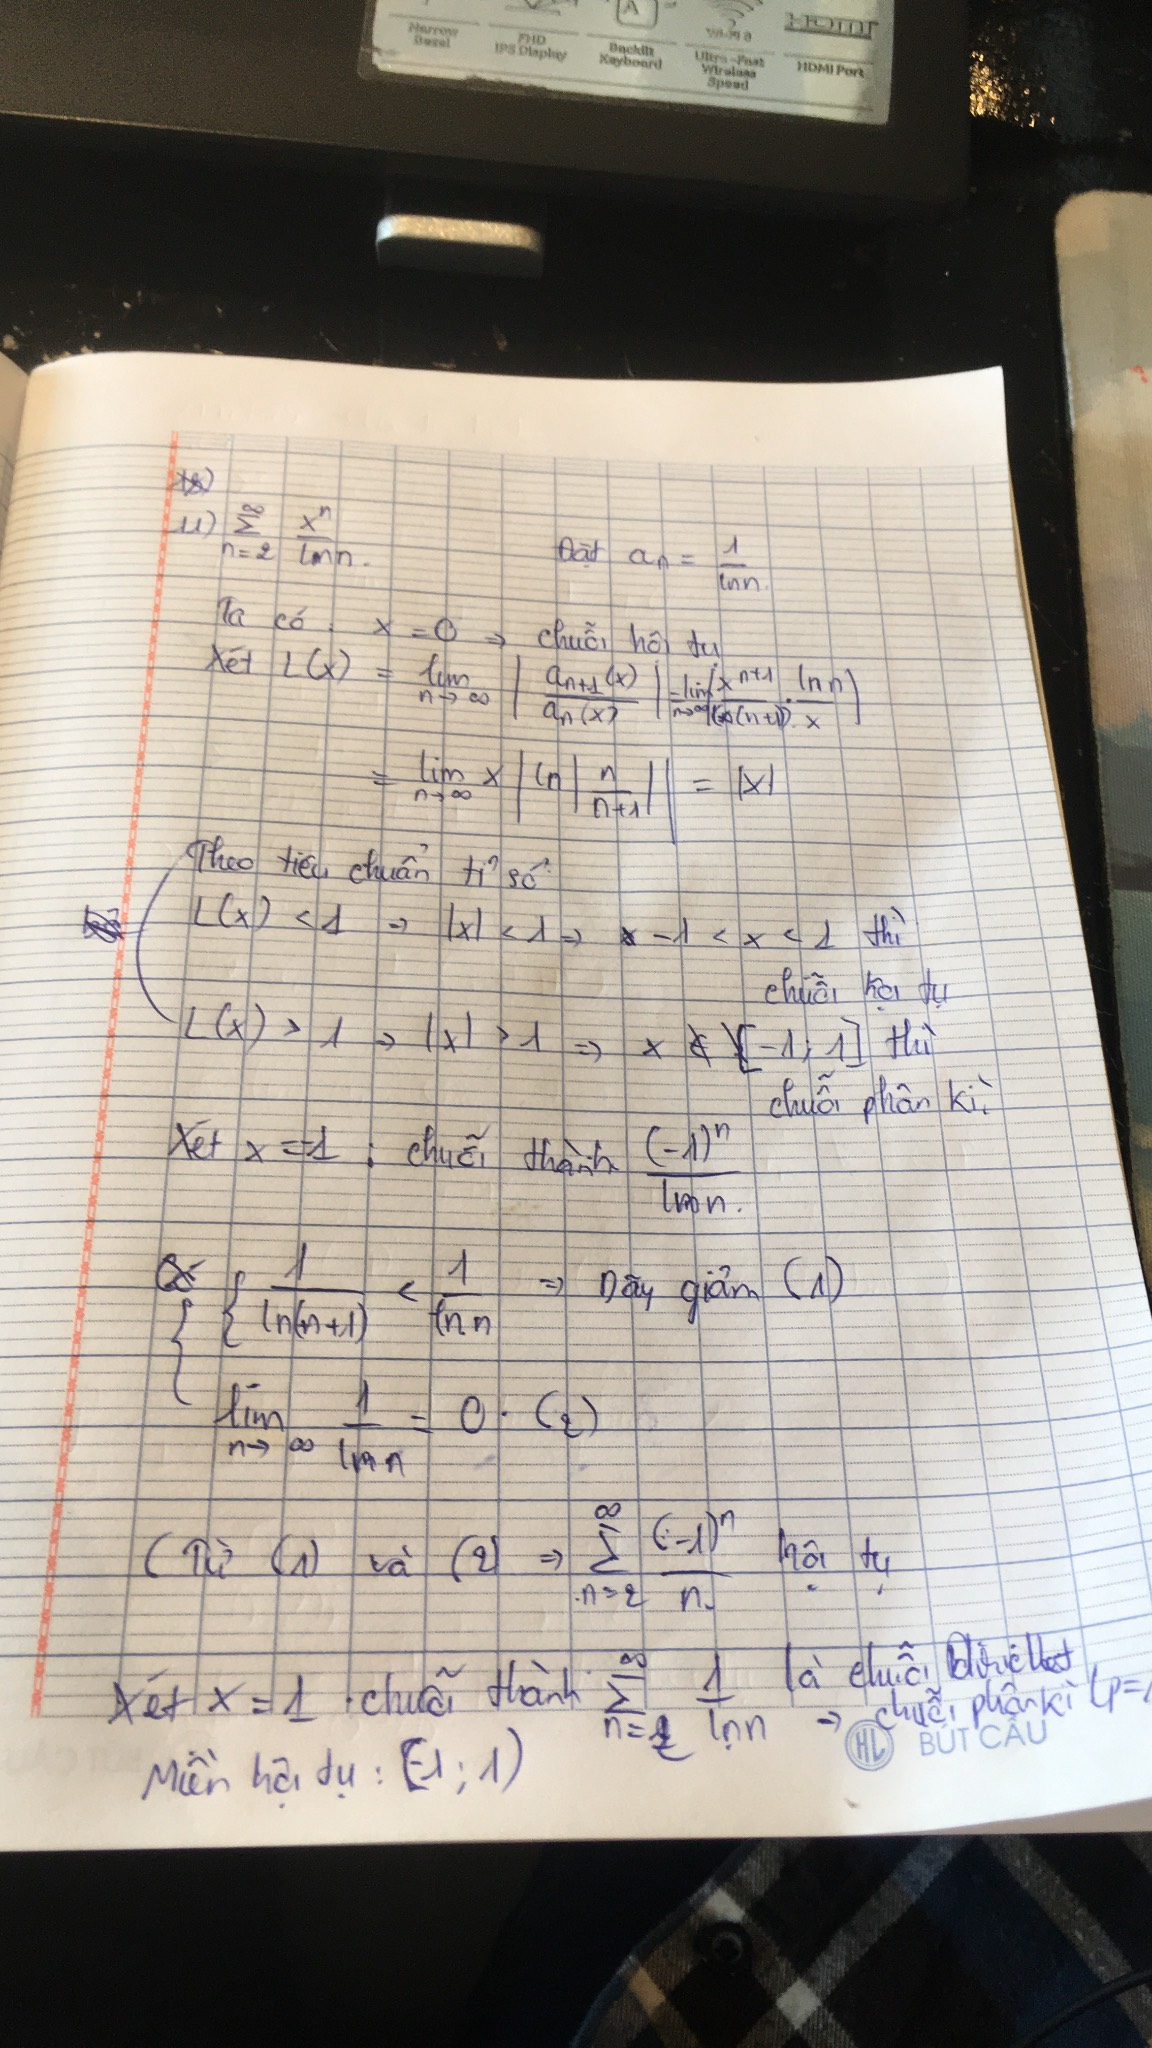 Narrow Bezel
FHD IPS Display
Backlit Keyboard
Wi-Fi 6
Ultra-Fast Wireless Speed
HDMI
HDMI Port
11) ∑_{n=2}^{∞} x^n / ln n.
Đặt a_n = 1 / ln n.
Ta có: x = 0 ⇒ chuỗi hội tụ
Xét L(x) = lim_{n→∞} | a_{n+1}(x) / a_n(x) | = lim_{n→∞} | x^{n+1} / ln(n+1) · ln n / x |
= lim_{n→∞} x | ln | n / n+1 | | = |x|
Theo tiêu chuẩn tỉ số
L(x) < 1 ⇒ |x| < 1 ⇒ -1 < x < 1 thì
chuỗi hội tụ
L(x) > 1 ⇒ |x| > 1 ⇒ x ∉ [-1; 1] thì
chuỗi phân kì.
Xét x = -1 : chuỗi thành (-1)^n / ln n.
{ 1 / ln(n+1) < 1 / ln n ⇒ Dãy giảm (1)
lim_{n→∞} 1 / ln n = 0. (2)
(Từ (1) và (2) ⇒ ∑_{n=2}^{∞} (-1)^n / n. hội tụ
Xét x = 1 . chuỗi thành ∑_{n=2} ^{∞} 1 / ln n là chuỗi
⇒ chuỗi phân kì (p=1
Miền hội tụ : [-1 ; 1)
HL BÚT CẦU